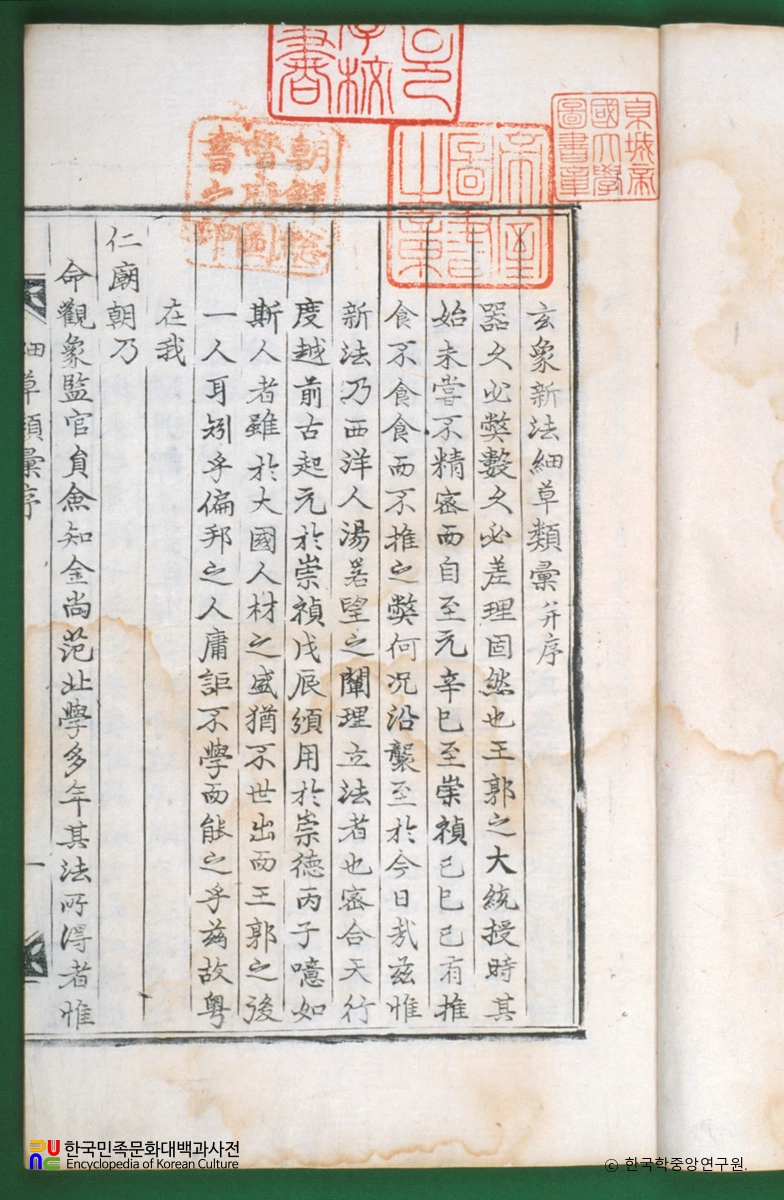 玄象新法細草類彙 幷序
器久必弊數久必差理固然也王郭之大統授時其
始未嘗不精密而自至元辛巳至崇禎己巳已有推
食不食食而不推之弊何況沿襲至於今日㢤兹惟
新法乃西洋人湯若望之闡理立法者也密合天行
度越前古起元於崇禎戊辰頒用於崇德丙子噫如
斯人者雖於大國人材之盛猶不世出而王郭之後
一人耳矧乎偏邦之人庸詎不學而能之乎兹故粤
在我
仁廟朝乃
命觀象監官員僉知金尙范北學多年其法所得者惟
細草類彙序
一
京城帝國大學圖書章
帝室圖書之章
朝鮮總督府圖書之印
한국민족문화대백과사전
Encyclopedia of Korean Culture
© 한국학중앙연구원.